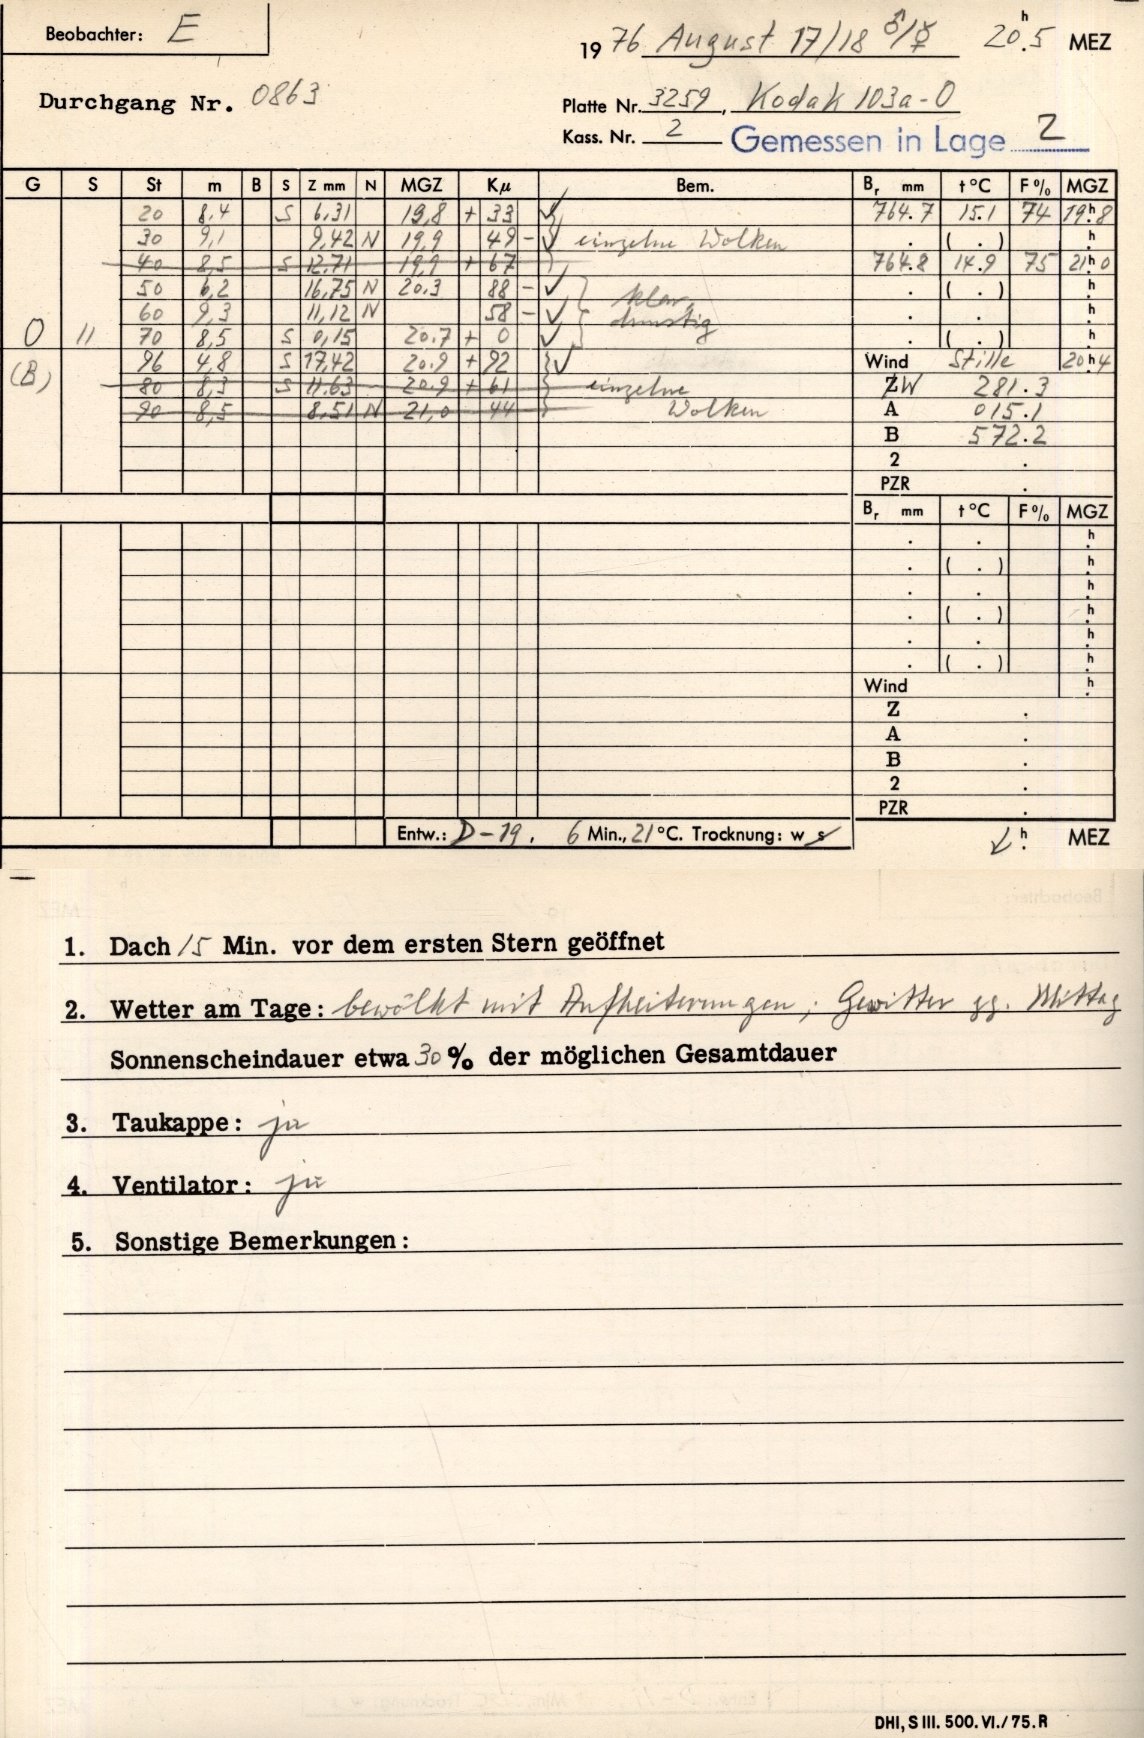 Beobachter: E
1976 August 17/18 ♂/☿ 20h.5 MEZ
Durchgang Nr. 0863
Platte Nr. 3259, Kodak 103a-O
Kass. Nr. 2 Gemessen in Lage 2
G S St m B S Z mm N MGZ Kμ Bem. Br mm t °C F % MGZ
20 8,4 S 6,31 19,8 + 33 ✓ 764.7 15.1 74 19h8
30 9,1 9,42 N 19,9 49 - ✓ einzelne Wolken . ( . ) h.
40 8,5 S 12,71 19,9 + 67 764.8 14.9 75 21h0
50 6,2 16,75 N 20.3 88 - ✓ klar, . ( . ) h.
60 9,3 11,12 N 58 - ✓ dunstig . . h.
O 11 70 8,5 S 0,15 20.7 + 0 ✓ . ( . ) h.
(B) 96 4,8 S 17,42 20.9 + 92 ✓ Wind Stille 20h4
80 8,3 S 11,63 20.9 + 61 einzelne ZW 281.3
90 8,5 8,51 N 21,0 44 - Wolken A 015.1
B 572.2
2 .
PZR .
Br mm t °C F % MGZ
. . h.
. ( . ) h.
. . h.
. ( . ) h.
. . h.
. ( . ) h.
Wind h.
Z .
A .
B .
2 .
PZR .
Entw.: D-19. 6 Min., 21 °C. Trocknung: w s h. MEZ
1. Dach 15 Min. vor dem ersten Stern geöffnet
2. Wetter am Tage: bewölkt mit Aufheiterungen; Gewitter gg. Mittag
Sonnenscheindauer etwa 30 % der möglichen Gesamtdauer
3. Taukappe: ja
4. Ventilator: ja
5. Sonstige Bemerkungen:
DHI, S III. 500. VI./75. R